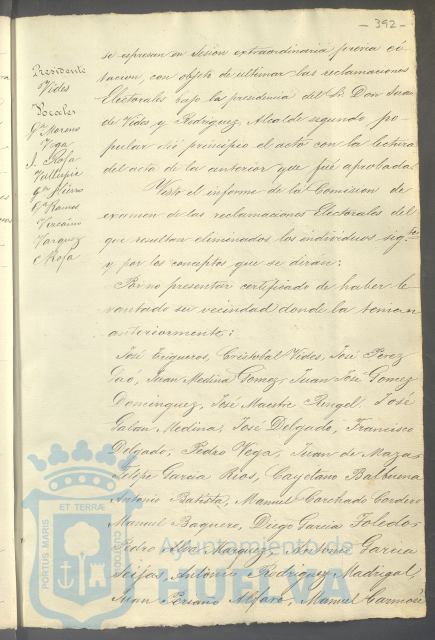 - 392 -
Presidente
Vides
Vocales
Ga Moreno
Vega
J. Rofa
Ga Hierro
Ga Ramos
Vizcaino
Vazquez
Rofa
se espresan en Sesión extraordinaria previa ci-
tacion, con objeto de ultimar las reclamaciones
Electorales bajo la presidencia del Sr. Don Juan
de Vides y Rodriguez, Alcalde segundo po-
pular dió principio el acto con la lectura
del acta de la anterior que fué aprobada.
Visto el informe de la Comision de
examen de las reclamaciones Electorales del
que resultan eliminados los individuos sigtes
y por los conceptos que se dirán:
Por no presentar certificado de haber le-
vantado su vecindad donde la tenian
anteriormente:
José Trigueros, Cristobal Vides, José Perez
Juan Medina Gomez, Juan José Gomez
Dominguez, José Maestre Rengel, José
Galan Medina, José Delgado, Francisco
Delgado, Pedro Vega, Juan de Maza,
Felipe Garcia Rios, Cayetano Balbuena
Antonio Batista, Manuel Corchado Cordero
Manuel Baquero, Diego Garcia Toledo,
Pedro Marquez, Antonio Garcia
Seifas, Antonio Rodriguez Madrigal,
Juan Alfaro, Manuel Carmosé
PORTUS MARIS ET TERRAE CUSTODIA
Ayuntamiento de
HUELVA